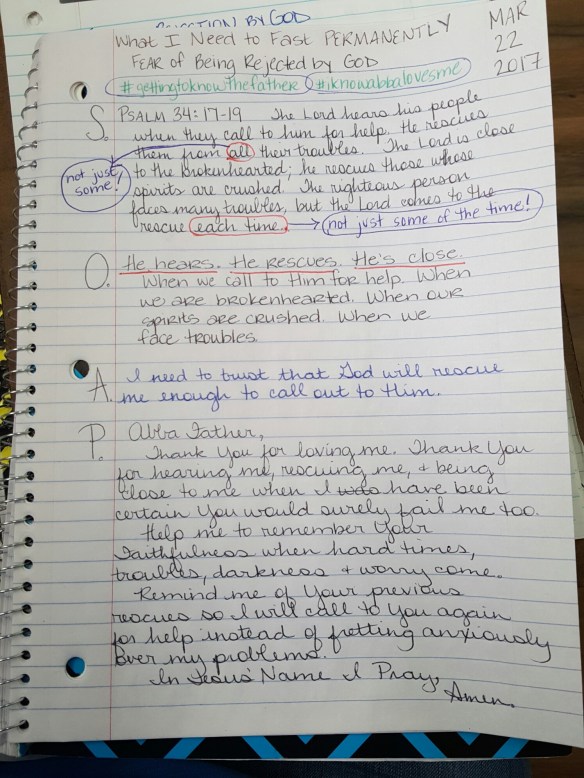 REJECTION BY GOD
What I Need to Fast PERMANENTLY
FEAR of Being Rejected by GOD
MAR
22
2017
#gettingtoknowthefather #iknowabbalovesme
S. PSALM 34:17-19 The Lord hears his people
when they call to him for help. He rescues
them from all their troubles. The LORD is close
not just some!
to the brokenhearted; he rescues those whose
spirits are crushed. The righteous person
faces many troubles, but the Lord comes to the
rescue each time. → not just some of the time!
O. He hears. He RESCUES. He's close.
When we call to Him for help. When
we are brokenhearted. When our
spirits are crushed. When we
face troubles.
A. I need to trust that God will rescue
me enough to call out to Him.
P. Abba Father,
Thank You for loving me. Thank You
for hearing me, rescuing me, + being
close to me when I have been
certain You would surely fail me too.
Help me to remember Your
Faithfulness when hard times,
troubles, darkness + worry come.
Remind me of Your previous
rescues so I will call to You again
for help instead of fretting anxiously
over my problems.
In Jesus Name I Pray,
Amen.